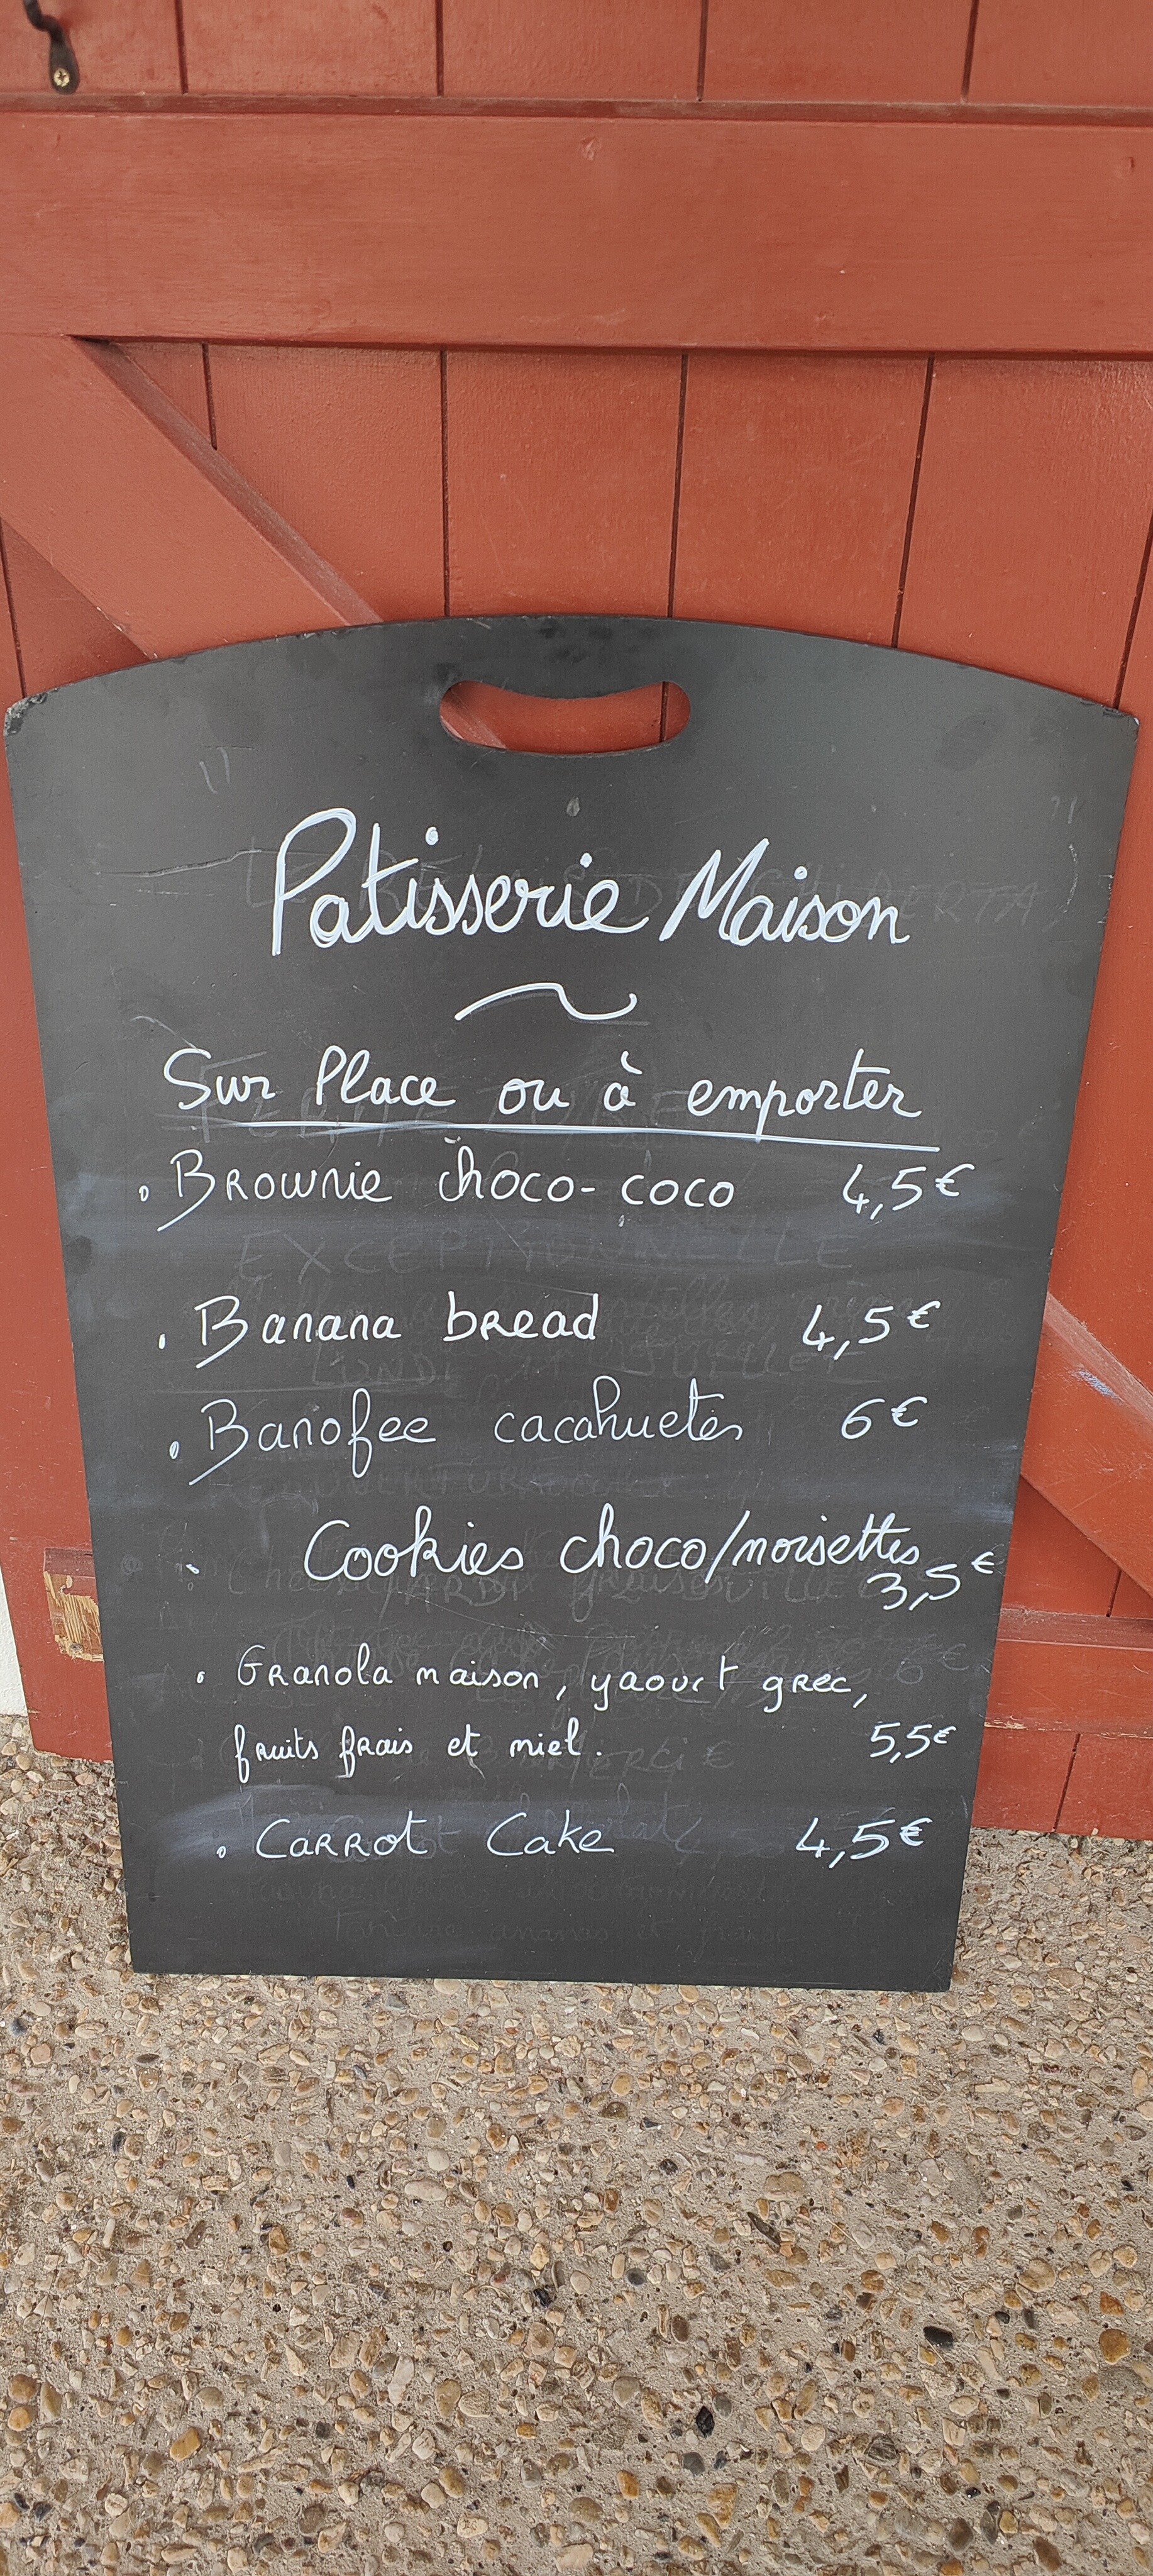 Patisserie Maison
Sur Place ou à emporter
. Brownie choco-coco 4,5€
. Banana bread 4,5€
. Banofee cacahuetes 6€
Cookies choco/noisettes
3,5€
. Granola maison, yaourt grec,
fruits frais et miel. 5,5€
. Carrot Cake 4,5€